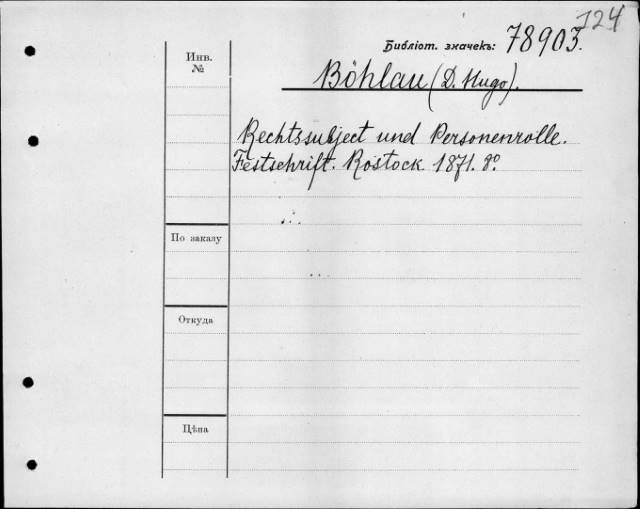 724
Библіот. значекъ: 78903.
Инв.
№
Böhlau (D. Hugo).
Rechtssubject und Personenrolle.
Festschrift. Rostock 1871. 8º.
По заказу
Откуда
Цѣна